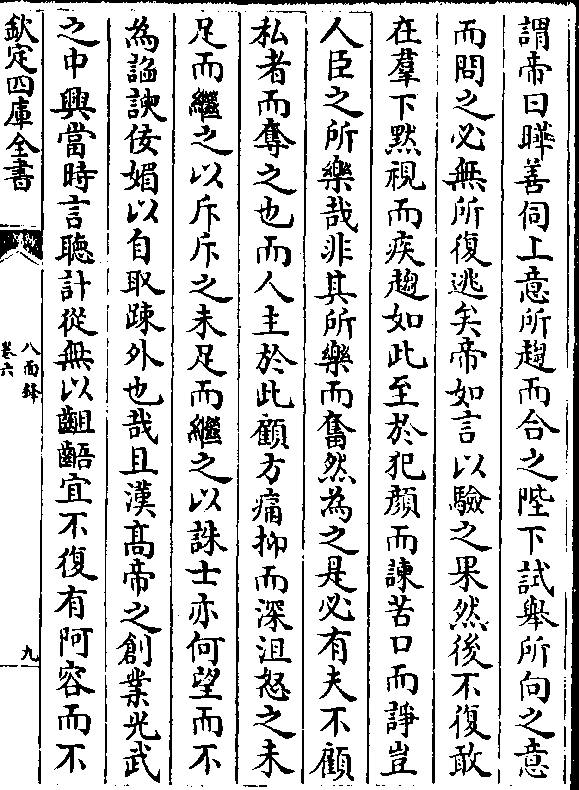 謂帝曰曄善伺上意所趨而合之陛下試舉所向之意
而問之必無所復逃矣帝如言以驗之果然後不復敢
在羣下黙視而疾趨如此至於犯顔而諫苦口而諍豈
人臣之所樂哉非其所樂而奮然為之是必有夫不顧
私者而奪之也而人主於此顧方痛抑而深沮怒之未
足而繼之以斥斥之未足而繼之以誅士亦何望而不
為謟諛佞媚以自取踈外也哉且漢髙帝之創業光武
之中興當時言聽計從無以齟齬宜不復有阿容而不
欽定四庫全書
八面鋒
卷六
九